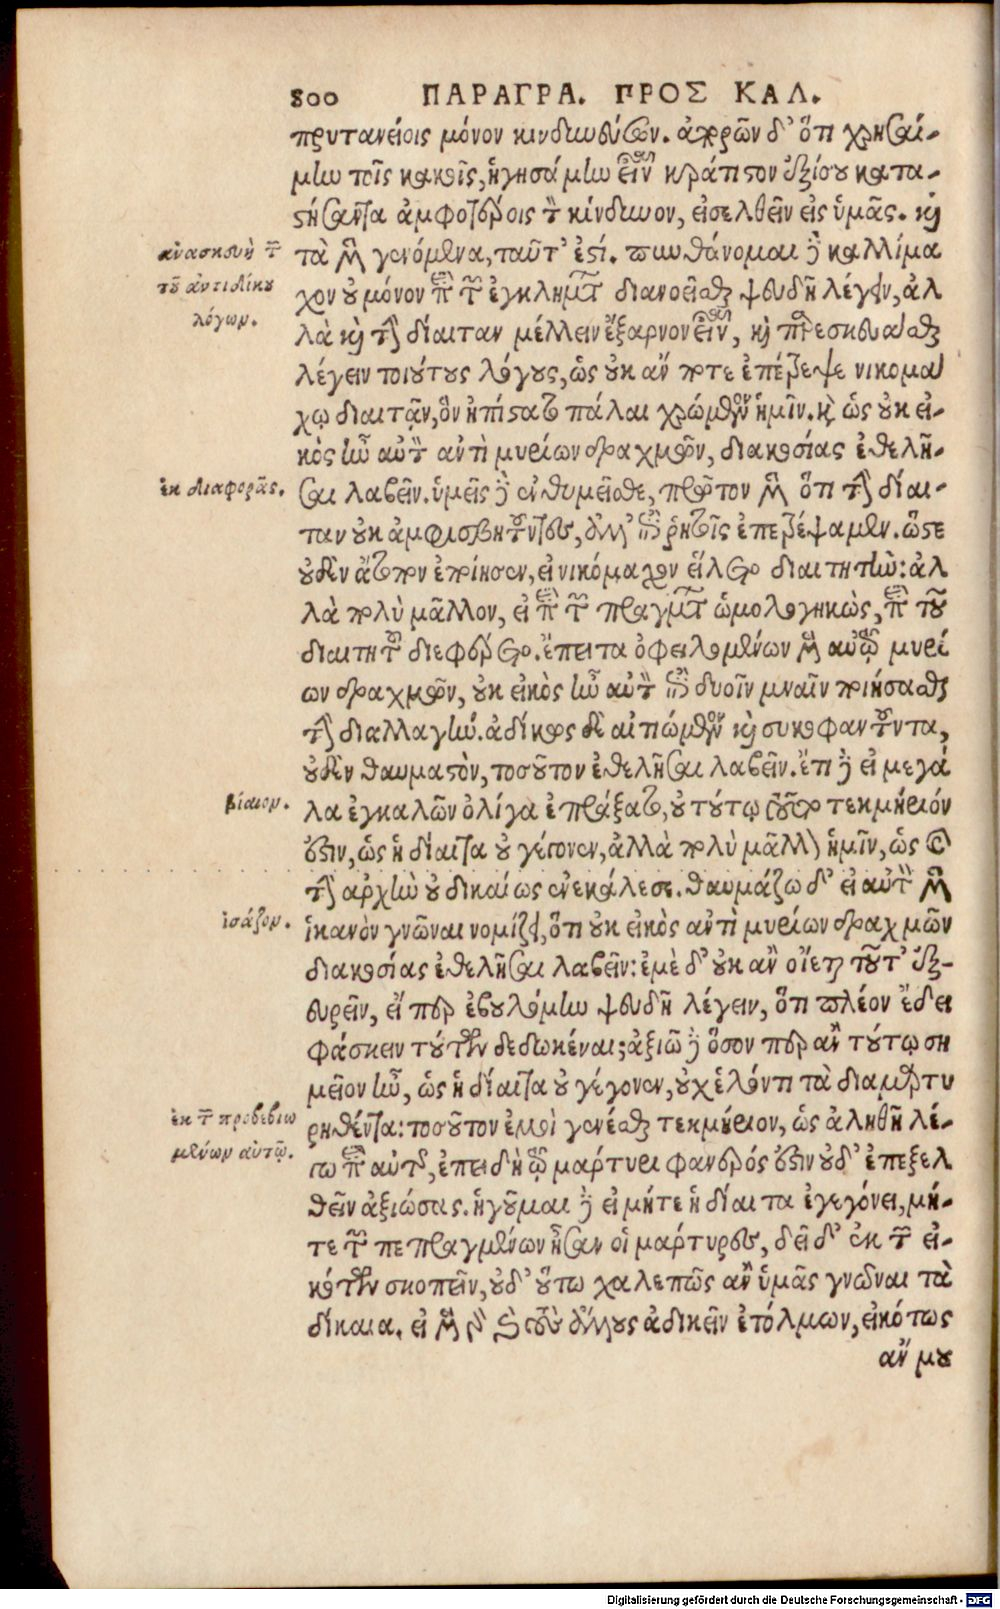 800 ΠΑΡΑΓΡΑ. ΠΡΟΣ ΚΑΛ.
πρυτανείοις μόνον κινδυνεύσων. ἀκρῶν δ' ὅτι χρησαί-
μην τοῖς κακοῖς, ἡγησάμην εἶναι κράτιστον ἐξίσου κατα-
στήσαντα ἀμφοτέροις τὸν κίνδυνον, εἰσελθεῖν εἰς ὑμᾶς. καὶ
τὰ μὲν γενόμενα, ταῦτ' ἐστί. πυνθάνομαι δὲ καλλίμα
χον οὐ μόνον περὶ τῶν ἐγκλημάτων διανοεῖσθαι ψευδῆ λέγειν, ἀλ
λὰ καὶ τὴν δίαιταν μέλλειν ἔξαρνον εἶναι, καὶ παρεσκευάσθαι
λέγειν τοιούτους λόγους, ὡς οὐκ ἄν ποτε ἐπέτρεψε νικομά
χῳ διαιτᾷν, ὃν ἠπίστατο πάλαι χρώμενον ἡμῖν. καὶ ὡς οὐκ εἰ-
κὸς ἦν αὐτὸν ἀντὶ μυρίων δραχμῶν, διακοσίας ἐθελῆ-
σαι λαβεῖν. ὑμεῖς δὲ ἐνθυμεῖσθε, πρῶτον μὲν ὅτι τὴν δίαι-
ταν οὐκ ἀμφισβητοῦντες, ἀλλ' ἐπὶ ῥητοῖς ἐπετρέψαμεν. ὥστε
οὐδὲν ἄτοπον ἐποίησεν, εἰ νικόμαχον εἵλετο διαιτητήν: ἀλ
λὰ πολὺ μᾶλλον, εἰ περὶ τῶν πραγμάτων ὡμολογηκὼς, περὶ τοῦ
διαιτητοῦ διεφέρετο. ἔπειτα ὀφειλομένων μὲν αὐτῷ μυρί
ων δραχμῶν, οὐκ εἰκὸς ἦν αὐτὸν ἐπὶ δυοῖν μναῖν ποιήσασθαι
τὴν διαλλαγήν. ἀδίκως δὲ αἰτιώμενον καὶ συκοφαντοῦντα,
οὐδὲν θαυμαστὸν, τοσοῦτον ἐθελῆσαι λαβεῖν. ἔτι δὲ εἰ μεγά
λα ἐγκαλῶν ὀλίγα ἐπράξατο, οὐ τούτῳ τοῦτο τεκμήριόν
ἐστιν, ὡς ἡ δίαιτα οὐ γέγονεν, ἀλλὰ πολὺ μᾶλλον ἡμῖν, ὡς καὶ
τὴν ἀρχὴν οὐ δικαίως ἐνεκάλεσε. θαυμάζω δ' εἰ αὑτὸν μὲν
ἱκανὸν γνῶναι νομίζει, ὅτι οὐκ εἰκὸς ἀντὶ μυρίων δραχμῶν
διακοσίας ἐθελῆσαι λαβεῖν: ἐμὲ δ' οὐκ ἂν οἴεται τοῦτ' ἐξ-
ευρεῖν, εἴ περ ἐβουλόμην ψευδῆ λέγειν, ὅτι πλέον ἔδει
φάσκειν τούτων δεδωκέναι; ἀξιῶ δὲ ὅσον περ ἂν τούτῳ ση
μεῖον ἦν, ὡς ἡ δίαιτα οὐ γέγονεν, οὐχ ἑλόντι τὰ διαμαρτυ
ρηθέντα: τοσοῦτον ἐμοὶ γενέσθαι τεκμήριον, ὡς ἀληθῆ λέ-
γω περὶ αὐτῆς, ἐπειδὴ τῷ μάρτυρι φανερός ἐστιν οὐδ' ἐπεξελ
θεῖν ἀξιώσας. ἡγοῦμαι δὲ εἰ μήτε ἡ δίαιτα ἐγεγόνει, μή-
τε τῶν πεπραγμένων ἦσαν οἱ μάρτυρες, δεῖ δ' ἐκ τῶν εἰ-
κότων σκοπεῖν, οὐδ' οὕτω χαλεπῶς ἂν ὑμᾶς γνῶναι τὰ
δίκαια. εἰ μὲν γὰρ τοὺς ἄλλους ἀδικεῖν ἐτόλμων, εἰκότως
ἄν μου
ἀνασκευὴ τῶν
τοῦ ἀντιδίκου
λόγων.
ἐκ διαφορᾶς.
βίαιον.
ἰσάζον.
ἐκ τῶν προβεβιω
μένων αὐτῷ.
Digitalisierung gefördert durch die Deutsche Forschungsgemeinschaft - DFG